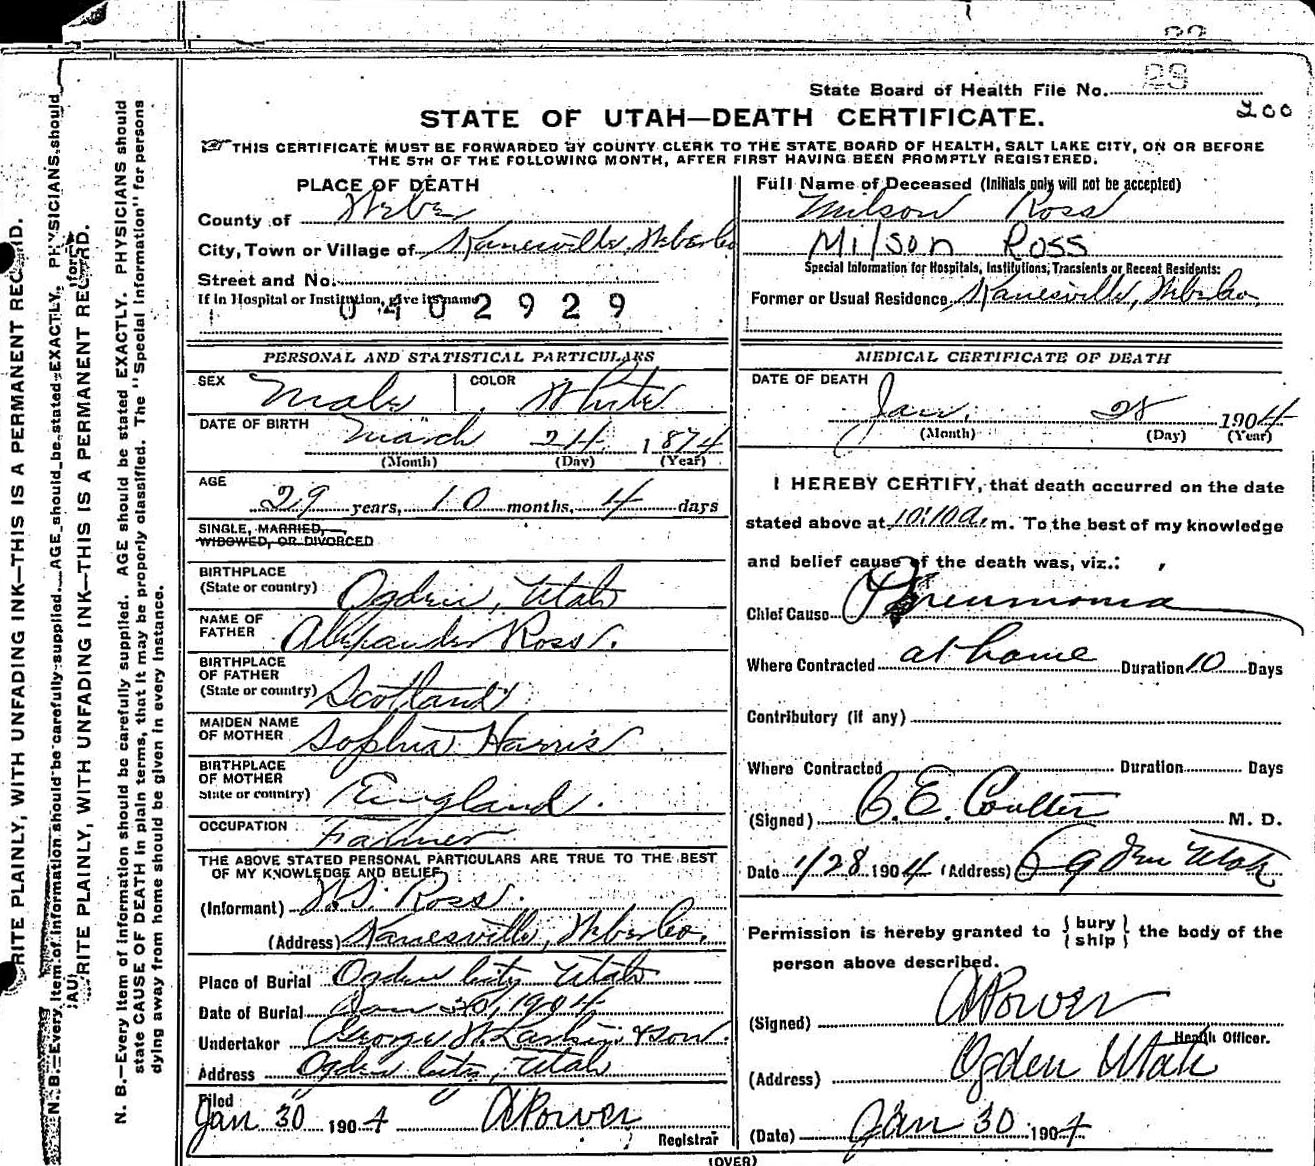 State Board of Health File No. 29
200
STATE OF UTAH—DEATH CERTIFICATE.
THIS CERTIFICATE MUST BE FORWARDED BY COUNTY CLERK TO THE STATE BOARD OF HEALTH, SALT LAKE CITY, ON OR BEFORE
THE 5TH OF THE FOLLOWING MONTH, AFTER FIRST HAVING BEEN PROMPTLY REGISTERED.
PLACE OF DEATH
County of Weber
City, Town or Village of Kanesville, Weber Co
Street and No.
If in Hospital or Institution, give its name
0402929
Full Name of Deceased (Initials only will not be accepted)
Milson Ross
Milson Ross
Special Information for Hospitals, Institutions, Transients or Recent Residents:
Former or Usual Residence Kanesville, Weber Co.
PERSONAL AND STATISTICAL PARTICULARS
SEX Male COLOR White
DATE OF BIRTH March 24 1874
(Month) (Day) (Year)
AGE
29 years, 10 months, 4 days
SINGLE, MARRIED,
WIDOWED, OR DIVORCED
BIRTHPLACE
(State or country) Ogden, Utah
NAME OF
FATHER Alexander Ross.
BIRTHPLACE
OF FATHER
(State or country) Scotland
MAIDEN NAME
OF MOTHER Sophia Harris
BIRTHPLACE
OF MOTHER
State or country) England.
OCCUPATION Farmer
THE ABOVE STATED PERSONAL PARTICULARS ARE TRUE TO THE BEST
OF MY KNOWLEDGE AND BELIEF
(Informant) Ross.
(Address) Kanesville, Weber Co.
Place of Burial Ogden City Utah
Date of Burial Jan 30, 1904
Undertaker George W. Larkin & Son.
Address Ogden City, Utah
Filed
Jan 30 1904 A Power
Registrar
MEDICAL CERTIFICATE OF DEATH
DATE OF DEATH
Jan. 28 1904
(Month) (Day) (Year)
I HEREBY CERTIFY, that death occurred on the date
stated above at 10:10 a. m. To the best of my knowledge
and belief cause of the death was, viz.:
Chief Cause Pneumonia
Where Contracted at home Duration 10 Days
Contributory (if any)
Where Contracted Duration Days
(Signed) C. E. Coulter M. D.
Date 1/28 1904 (Address) Ogden Utah
Permission is hereby granted to { bury
ship } the body of the
person above described.
(Signed) A Power
Health Officer.
(Address) Ogden Utah
(Date) Jan 30 1904
(OVER)
RITE PLAINLY, WITH UNFADING INK—THIS IS A PERMANENT RECORD.
N. B.—Every item of information should be carefully supplied. AGE should be stated EXACTLY. PHYSICIANS should
RITE PLAINLY, WITH UNFADING INK—THIS IS A PERMANENT RECORD.
N. B.—Every item of information should be carefully supplied. AGE should be stated EXACTLY. PHYSICIANS should
state CAUSE OF DEATH in plain terms, that it may be properly classified. The "Special Information" for persons
dying away from home should be given in every instance.